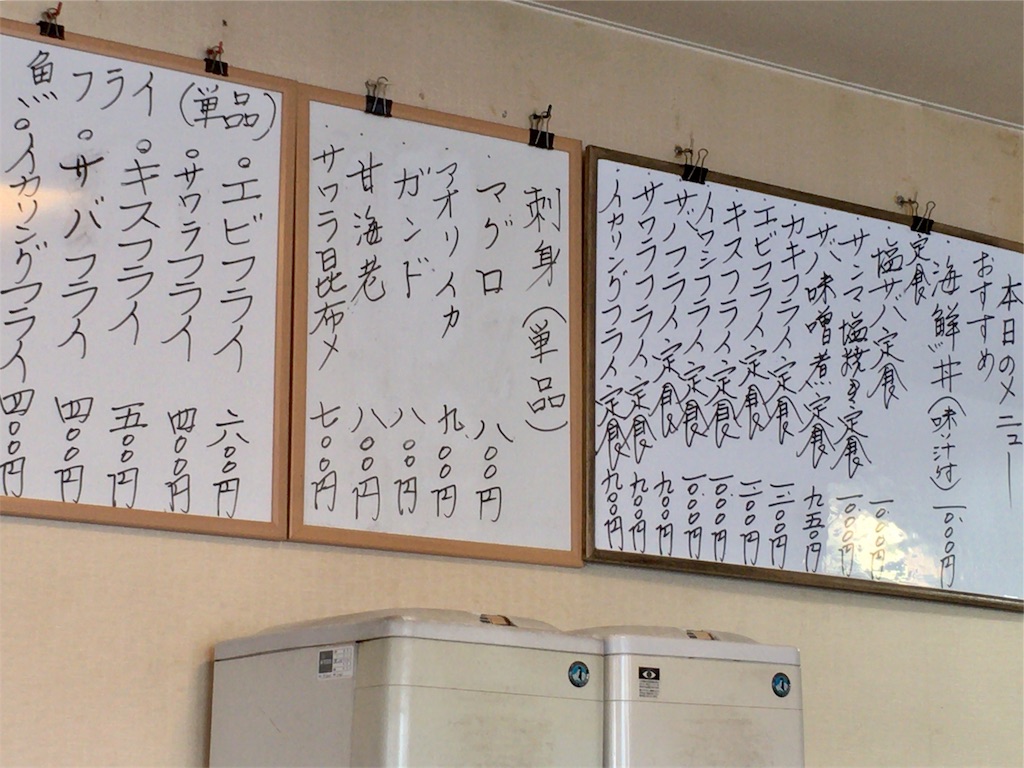 本日のメニュー
おすすめ
海鮮丼(味汁付)一〇〇〇円
定食
塩サバ定食 一〇〇〇円
サンマ塩焼き定食 一〇〇〇円
サバ味噌煮定食 九五〇円
カキフライ定食 一一〇〇円
エビフライ定食 一二〇〇円
キスフライ定食 一〇〇〇円
イワシフライ定食 一〇〇〇円
サバフライ定食 九〇〇円
サワラフライ定食 九〇〇円
イカリングフライ定食 九〇〇円
刺身(単品)
マグロ 八〇〇円
アオリイカ 九〇〇円
ガンド 八〇〇円
甘海老 八〇〇円
サワラ昆布〆 七〇〇円
魚フライ(単品)
エビフライ 六〇〇円
サワラフライ 四〇〇円
キスフライ 五〇〇円
サバフライ 四〇〇円
イカリングフライ 四〇〇円